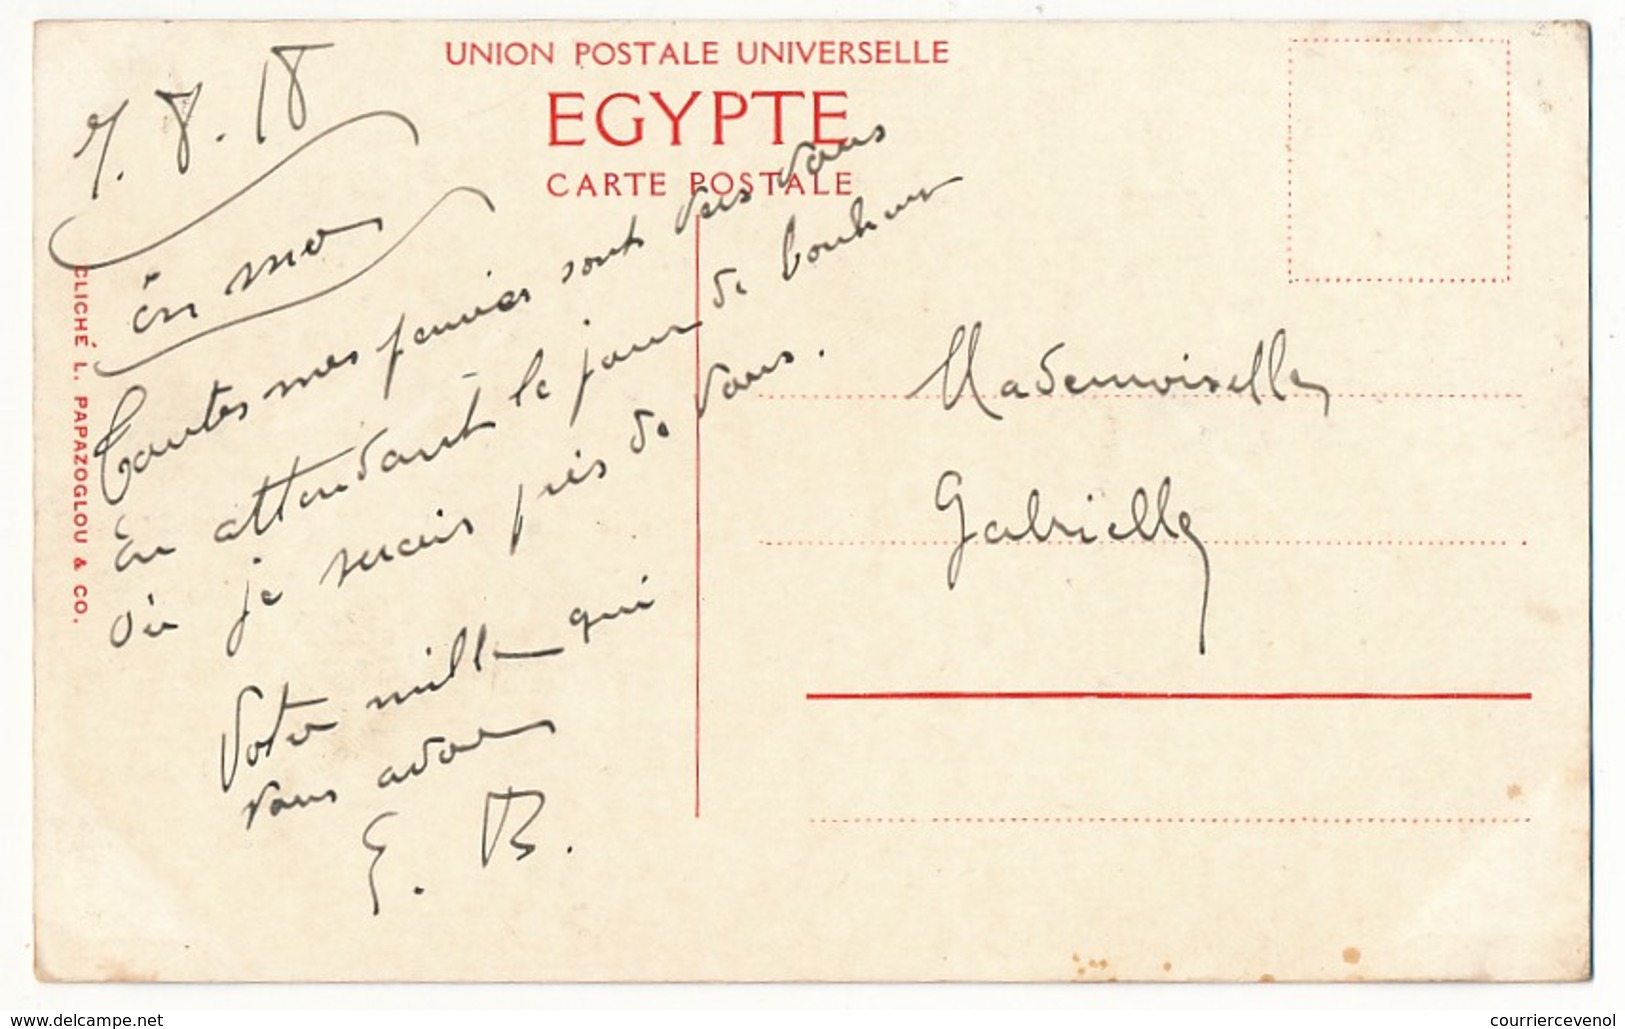 UNION POSTALE UNIVERSELLE
EGYPTE
CARTE POSTALE
CLICHÉ L. PAPAZOGLOU & CO.
7.8.18
en mer
Toutes mes pensées sont vers vous
En attendant le jour de bonheur
où je serais près de vous.
Votre mille qui
vous adore
E. B.
Mademoiselle
Gabrielle
www.delcampe.net
courriercevenol